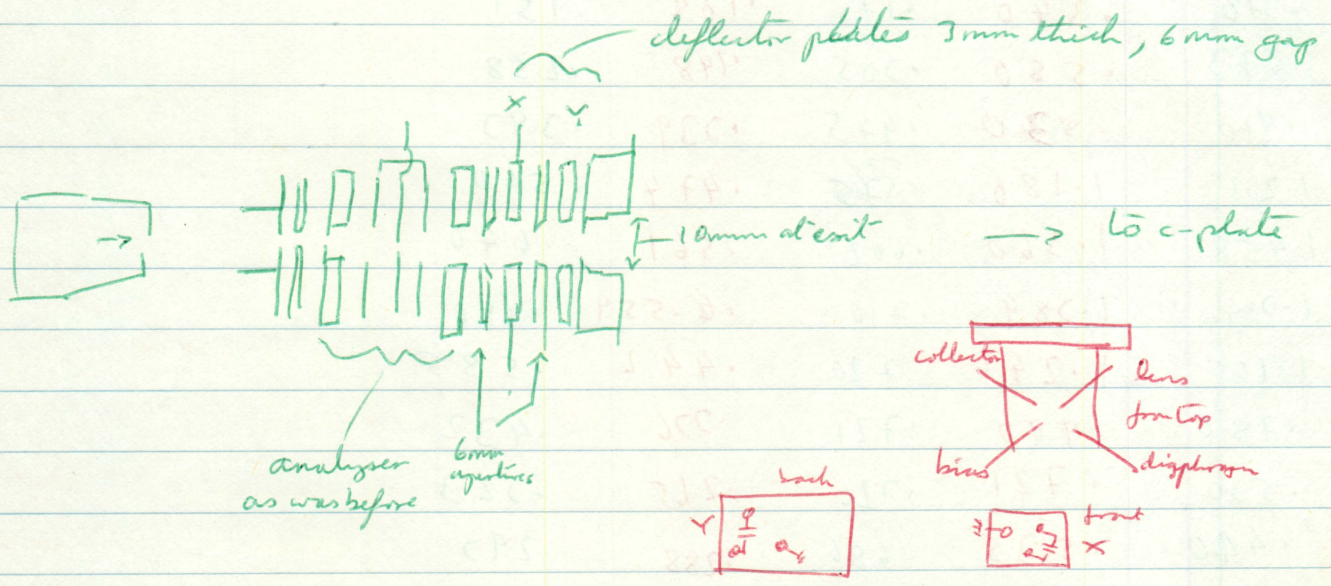 deflector plates 3mm thick, 6mm gap
X Y
10mm at exit → to c-plate
analyser
as was before
6mm
apertures
collector
lens
from top
bias
diaphragm
back
Y
front
X